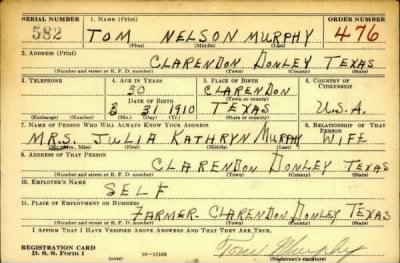 SERIAL NUMBER 1. NAME (Print) ORDER NUMBER
582 TOM NELSON MURPHY 476
(First) (Middle) (Last)
2. ADDRESS (Print)
CLARENDON DONLEY TEXAS
(Number and street or R. F. D. number) (Town) (County) (State)
3. TELEPHONE 4. AGE IN YEARS 5. PLACE OF BIRTH 6. COUNTRY OF CITIZENSHIP
30 CLARENDON
DATE OF BIRTH (Town or county)
8 31 1910 TEXAS U.S.A.
(Exchange) (Number) (Mo.) (Day) (Yr.) (State or country)
7. NAME OF PERSON WHO WILL ALWAYS KNOW YOUR ADDRESS 8. RELATIONSHIP OF THAT PERSON
MRS. JULIA KATHRYN MURPHY WIFE
(Mr., Mrs., Miss) (First) (Middle) (Last)
9. ADDRESS OF THAT PERSON
CLARENDON DONLEY TEXAS
(Number and street or R. F. D. number) (Town) (County) (State)
10. EMPLOYER'S NAME
SELF
11. PLACE OF EMPLOYMENT OR BUSINESS
FARMER- CLARENDON DONLEY TEXAS
(Number and street or R. F. D. number) (Town) (County) (State)
I AFFIRM THAT I HAVE VERIFIED ABOVE ANSWERS AND THAT THEY ARE TRUE.
REGISTRATION CARD
D. S. S. Form 1 Murphy
(Registrant's signature)